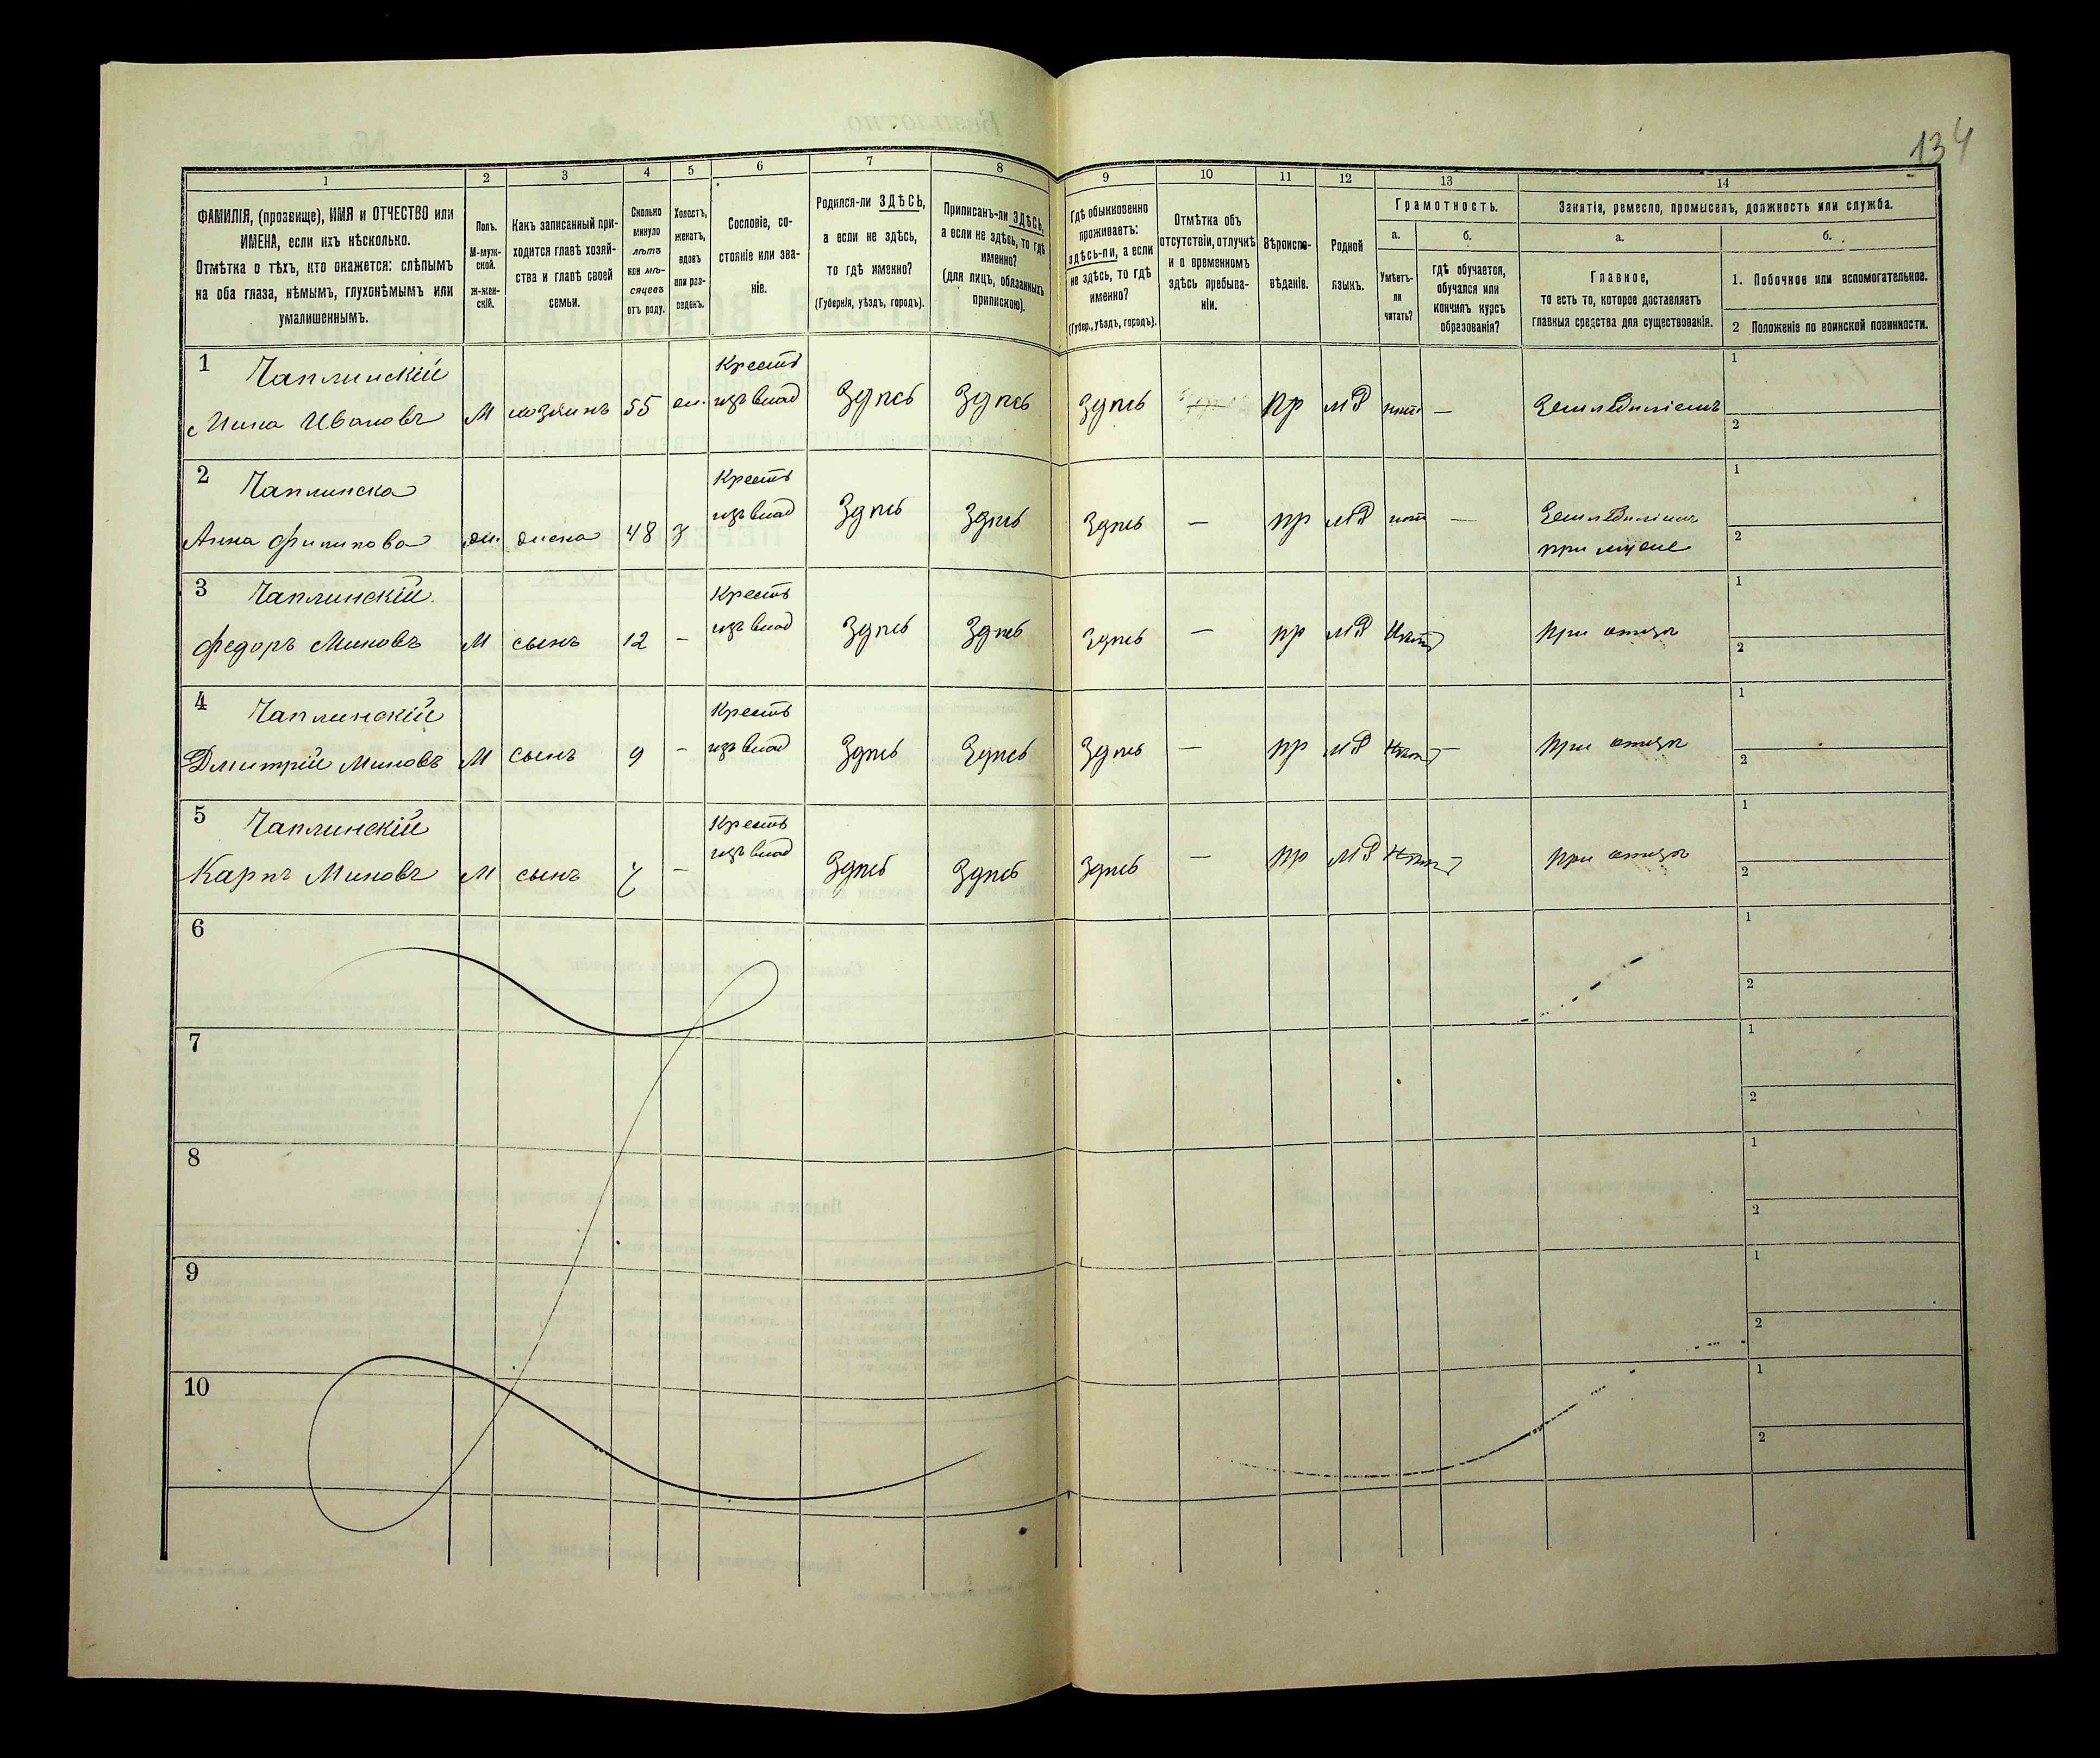 134
1
2
3
4
5
6
7
8
9
10
11
12
13
14
ФАМИЛІЯ, (прозвище), ИМЯ и ОТЧЕСТВО или
ИМЕНА, если ихъ нѣсколько.
Отмѣтка о тѣхъ, кто окажется: слѣпымъ
на оба глаза, нѣмымъ, глухонѣмымъ или
умалишеннымъ.
Полъ.
М-муж-
ской.
ж-жен-
скій.
Какъ записанный при-
ходится главѣ хозяй-
ства и главѣ своей
семьи.
Сколько
минуло
лѣтъ
или мѣ-
сяцевъ
отъ роду.
Холостъ,
женатъ,
вдовъ
или раз-
веденъ.
Сословіе, со-
стояніе или зва-
ніе.
Родился-ли ЗДѢСЬ,
а если не здѣсь,
то гдѣ именно?
(Губернія, уѣздъ, городъ).
Приписанъ-ли ЗДѢСЬ,
а если не здѣсь, то гдѣ
именно?
(для лицъ, обязанныхъ
припискою).
Гдѣ обыкновенно
проживаетъ:
здѣсь-ли, а если
не здѣсь, то гдѣ
именно?
(Губер., уѣздъ, городъ).
Отмѣтка объ
отсутствіи, отлучкѣ
и о временномъ
здѣсь пребыва-
ніи.
Вѣроиспо-
вѣданіе.
Родной
языкъ.
Грамотность.
а.
Умѣетъ-
ли
читать?
б.
гдѣ обучается,
обучался или
кончилъ курсъ
образованія?
Занятія, ремесло, промыселъ, должность или служба.
а.
Главное,
то есть то, которое доставляетъ
главныя средства для существованія.
б.
1. Побочное или вспомогательное.
2 Положеніе по воинской повинности.
1 Чаплинскій
Мина Ивановъ М хозяинъ 55 ж. Крестъ
изъ влад Здѣсь Здѣсь Здѣсь — пр МР нѣтъ — Земледѣліемъ
1
2
2 Чаплинска
Анна Филипова ж. жена 48 з Крестъ
изъ влад Здѣсь Здѣсь Здѣсь — пр МР нѣтъ — Земледѣліемъ
при мужѣ
1
2
3 Чаплинскій
Федоръ Миновъ М сынъ 12 - Крестъ
изъ влад Здѣсь Здѣсь Здѣсь — пр МР Нѣтъ при отцѣ
1
2
4 Чаплинскій
Дмитрій Миновъ М сынъ 9 - Крестъ
изъ влад Здѣсь Здѣсь Здѣсь — пр МР Нѣтъ — при отцѣ
1
2
5 Чаплинскій
Карпъ Миновъ М сынъ - Крестъ
изъ влад Здѣсь Здѣсь Здѣсь — пр МР Нѣтъ при отцѣ
1
2
6
1
2
7
1
2
8
1
2
9
1
2
10
1
2